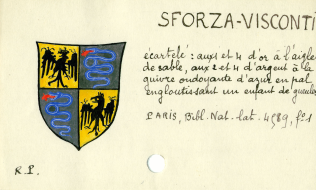 SFORZA-VISCONTI
écartelé : aux 1 et 4 d'or à l'aigle
de sable, aux 2 et 3 d'argent à la
guivre ondoyante d'azur en pal
engloutissant un enfant de gueules
PARIS, Bibl. Nat. lat. 4589, f° 1
R.P.